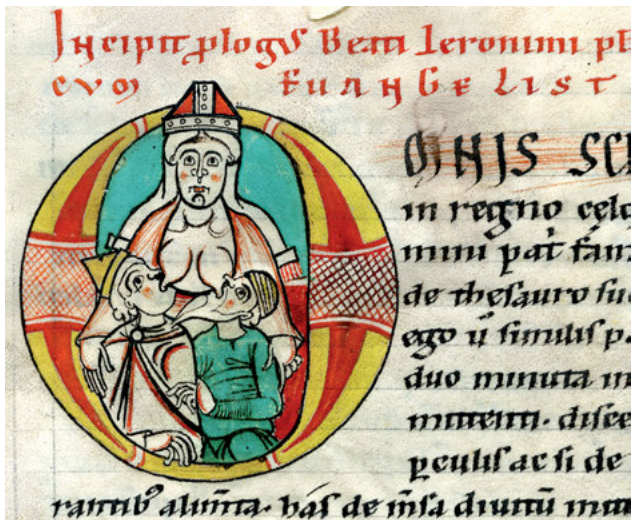 Incipit plogus Beati Ieronimi
EUANGELIST
MNIS SC
in regno cel
minu pat
de thesauro su
ego similis p
duo minuta in
mittenti. disce
pculis ac si de
rantib alim̄ta. has de m̄sa diuitū